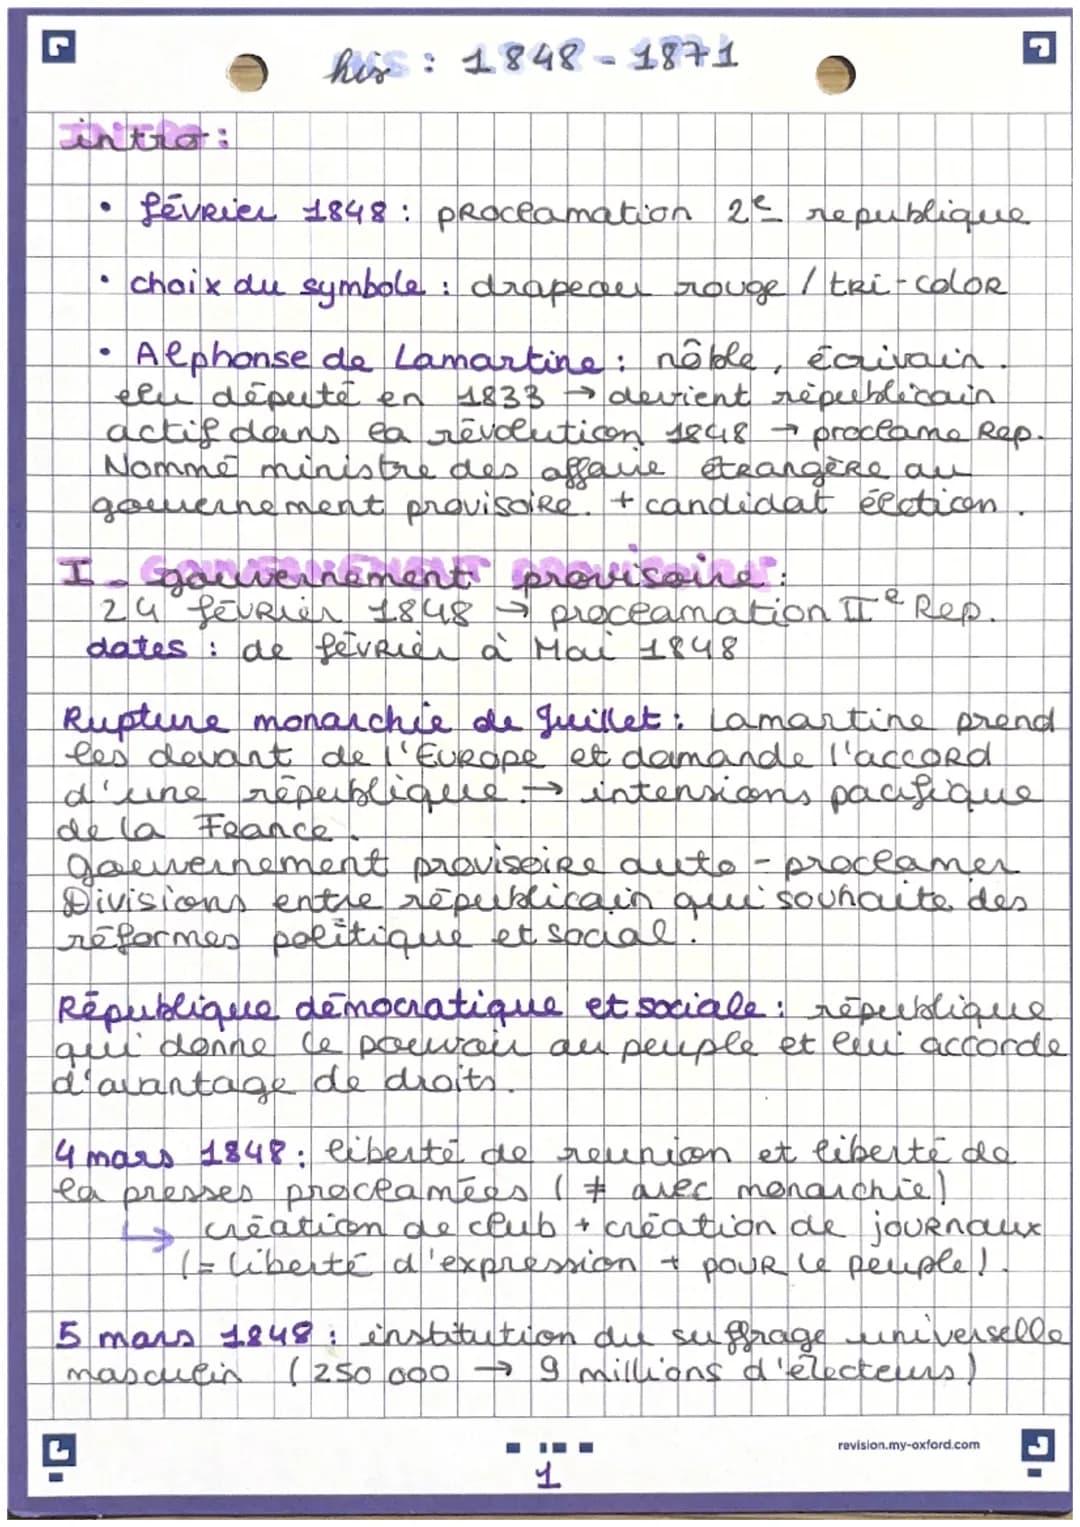 his : 1848 - 1871
intro :
• février 1848 : proclamation 2e republique
• choix du symbole : drapeau rouge / tri-color
• Alphonse de Lamartine : nôble, écrivain.
elu député en 1833 → devient républicain
actif dans la révolution 1848 → proclame Rep.
Nommé ministre des affaire étrangère au
gouvernement provisoire. + candidat élection.
I - gouvernement provisoire :
24 février 1848 → proclamation IIe Rep.
dates : de février à Mai 1848
Rupture monarchie de Juillet : Lamartine prend
les devant de l'Europe et demande l'accord
d'une république. → intensions pacifique
de la France.
gouvernement provisoire auto-proclamer
Divisions entre républicain qui souhaite des
réformes politique et social.
République démocratique et sociale : république
qui donne le pouvoir au peuple et lui accorde
d'avantage de droits.
4 mars 1848 : liberté de reunion et liberté de
la presses proclamées ( ≠ avec monarchie)
↳ création de club + création de journaux
(= liberté d'expression + pour le peuple).
5 mars 1848 : institution du suffrage universelle
masculin (250 000 → 9 millions d'électeurs)
revision.my-oxford.com
1